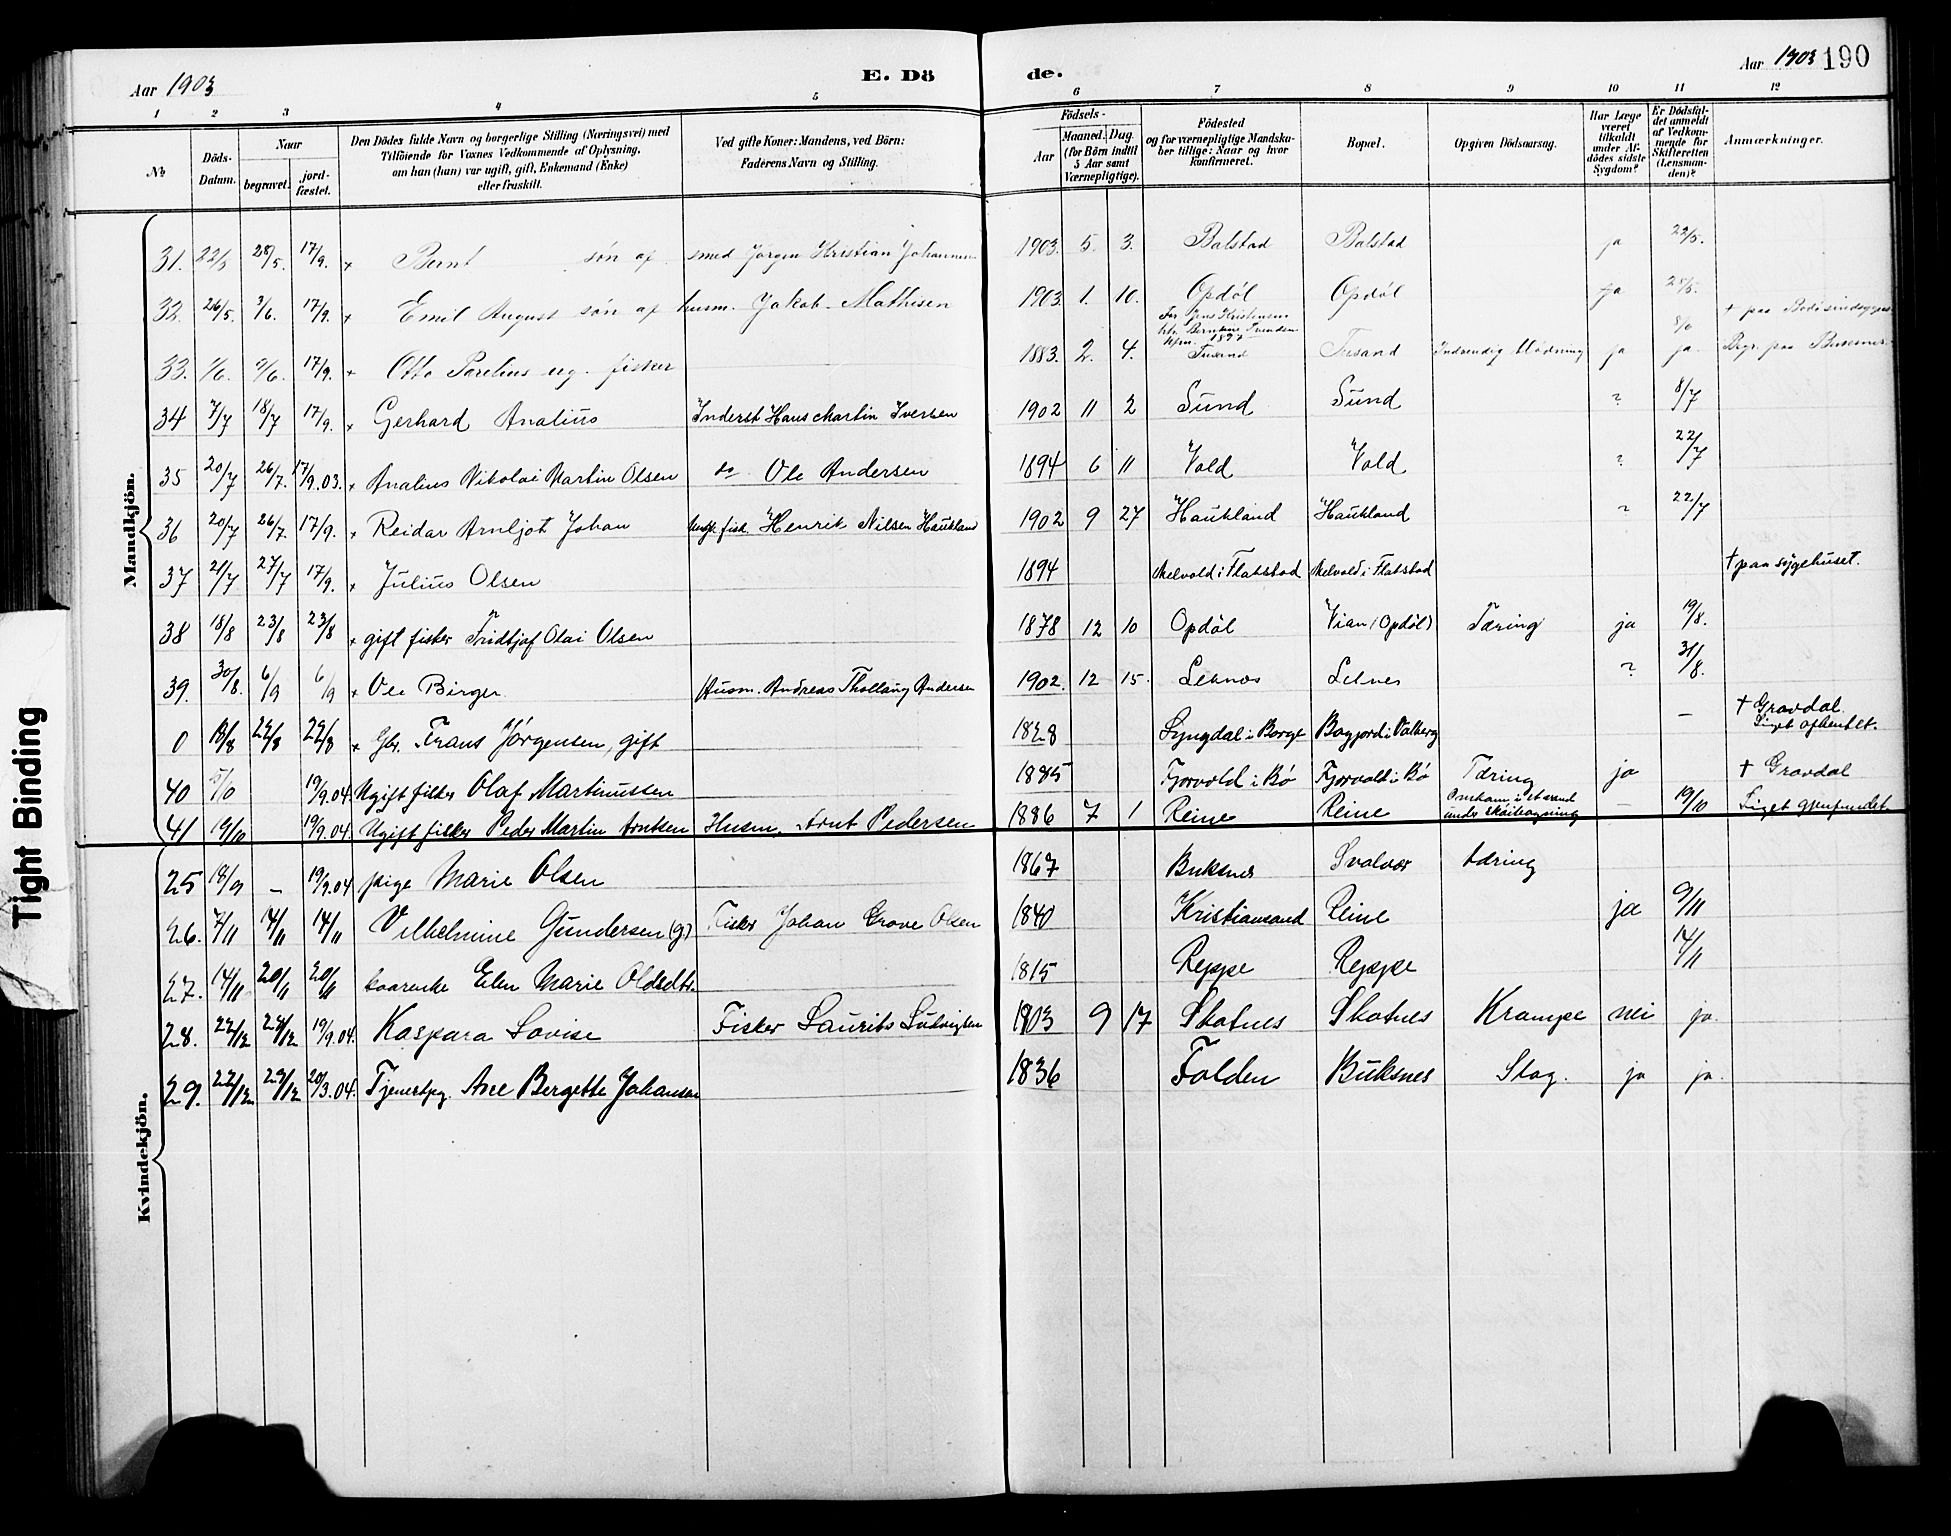 Aar 1903
E. Dö
de.
Aar 1903
190
1 2 3 4 5 6 7 8 9 10 11 12
№
Döds-Datum.
Naar
begravet.
jord-fæstet.
Den Dödes fulde Navn og borgerlige Stilling (Næringsvei) med
Tilföiende for Voxnes Vedkommende af Oplysning,
om han (hun) var ugift, gift, Enkemand (Enke)
eller fraskilt.
Ved gifte Koner: Mandens, ved Börn:
Faderens Navn og Stilling.
Födsels-
Aar
Maaned. Dag.
(for Börn indtil
5 Aar samt
Værnepligtige).
Födested
og for værnepligtige Mandska-
ber tillige: Naar og hvor
konfirmeret.
Bopæl.
Opgiven Dödsaarsag.
Har Læge
været
tilkaldt
under Af-
dödes sidste
Sygdom?
Er Dödsfal-
det anmeldt
af Vedkom-
mende for
Skifteretten
(Lensman-
den)?
Anmærkninger.
Mandkjön.
31. 22/5 28/5. 17/9. × Bernt søn af smed Jørgen Kristian Johannesen 1903. 5. 3. Balstad Balstad ja 22/5.
32. 26/5. 3/6. 17/9. × Emil August søn af husm. Jakob Mathisen 1903. 1. 10. Opdøl Opdøl ja
33. 1/6. 17/9. × Otto Parelius ug. fisker 1883. 2. 4. Far Jens Kristensen 1897 Tusand Tusand Indvendig blødning ja ja. † paa Bodø Begr. paa
34 7/7 18/7 17/9. × Gerhard Analius Inderst Hans Martin Iversen 1902 11 2 Sund Sund ? 8/7
35 20/7 26/7. 17/9.03. × Analius Nikolai Martin Olsen do Ole Andersen 1894 6 11 Vold Vold ? 22/7
36 20/7 26/7. 17/9. × Reidar Arnljot Johan fisk. Henrik Nilsen Haukland 1902 9 27 Haukland Haukland ? 22/7
37 21/7 27/7 17/9. × Julius Olsen 1894 Melvold i Flakstad Melvold i Flakstad † paa sygehuset.
38 18/8 23/8 23/8 × gift fisker Fridtjof Olai Olsen 1878 12 10 Opdøl Vian (Opdøl) Tæring ja 19/8.
39. 30/8. 6/9 6/9 × Ole Birger Husm. Andreas Thollaug Andersen 1902. 12 15. Leknes Leknes ? 31/8.
0 18/8 22/8 22/8 × Gbr. Frans Jørgensen, gift 1828 Lyngdal i Borge Bogjord i Valberg — † Gravdal. Liget afhentet.
40 19/9.04 Ugift fisker Olaf Martinussen 1885 Fjorvold i Bø Fjorvold i Bø Tæring ja † Gravdal
41 19/10 19/9.04. Ugift fisker Peder Martin Arntsen Husm. Arnt Pedersen 1886 7 1 Reine Reine Omkom i et under — 19/10 Liget gjenfundet
Kvindekjön.
25 18/9 — 19/9.04 pige Marie Olsen 1867 Buksnes Svolvær tæring
26. 7/11 14/11 14/11 Vilhelmine Gundersen (g.) Fisker Johan Grove Olsen 1840 Kristiansand Reine ja 9/11
27. 14/11 20/11 20/11 Elen Marie Oldsdtr. 1815 Reppe Reppe 14/11
28. 22/12 29/12 19/9.04. Kaspara Lovise Fisker Laurits Ludvigsen 1903 9 17 Skotnes Skotnes Krampe nei ja.
29. 22/12 29/12 20/3.04. Tjenestpg. Ane Bergette Johansen 1836 Folden Buksnes Slag. ja ja.
Tight Binding